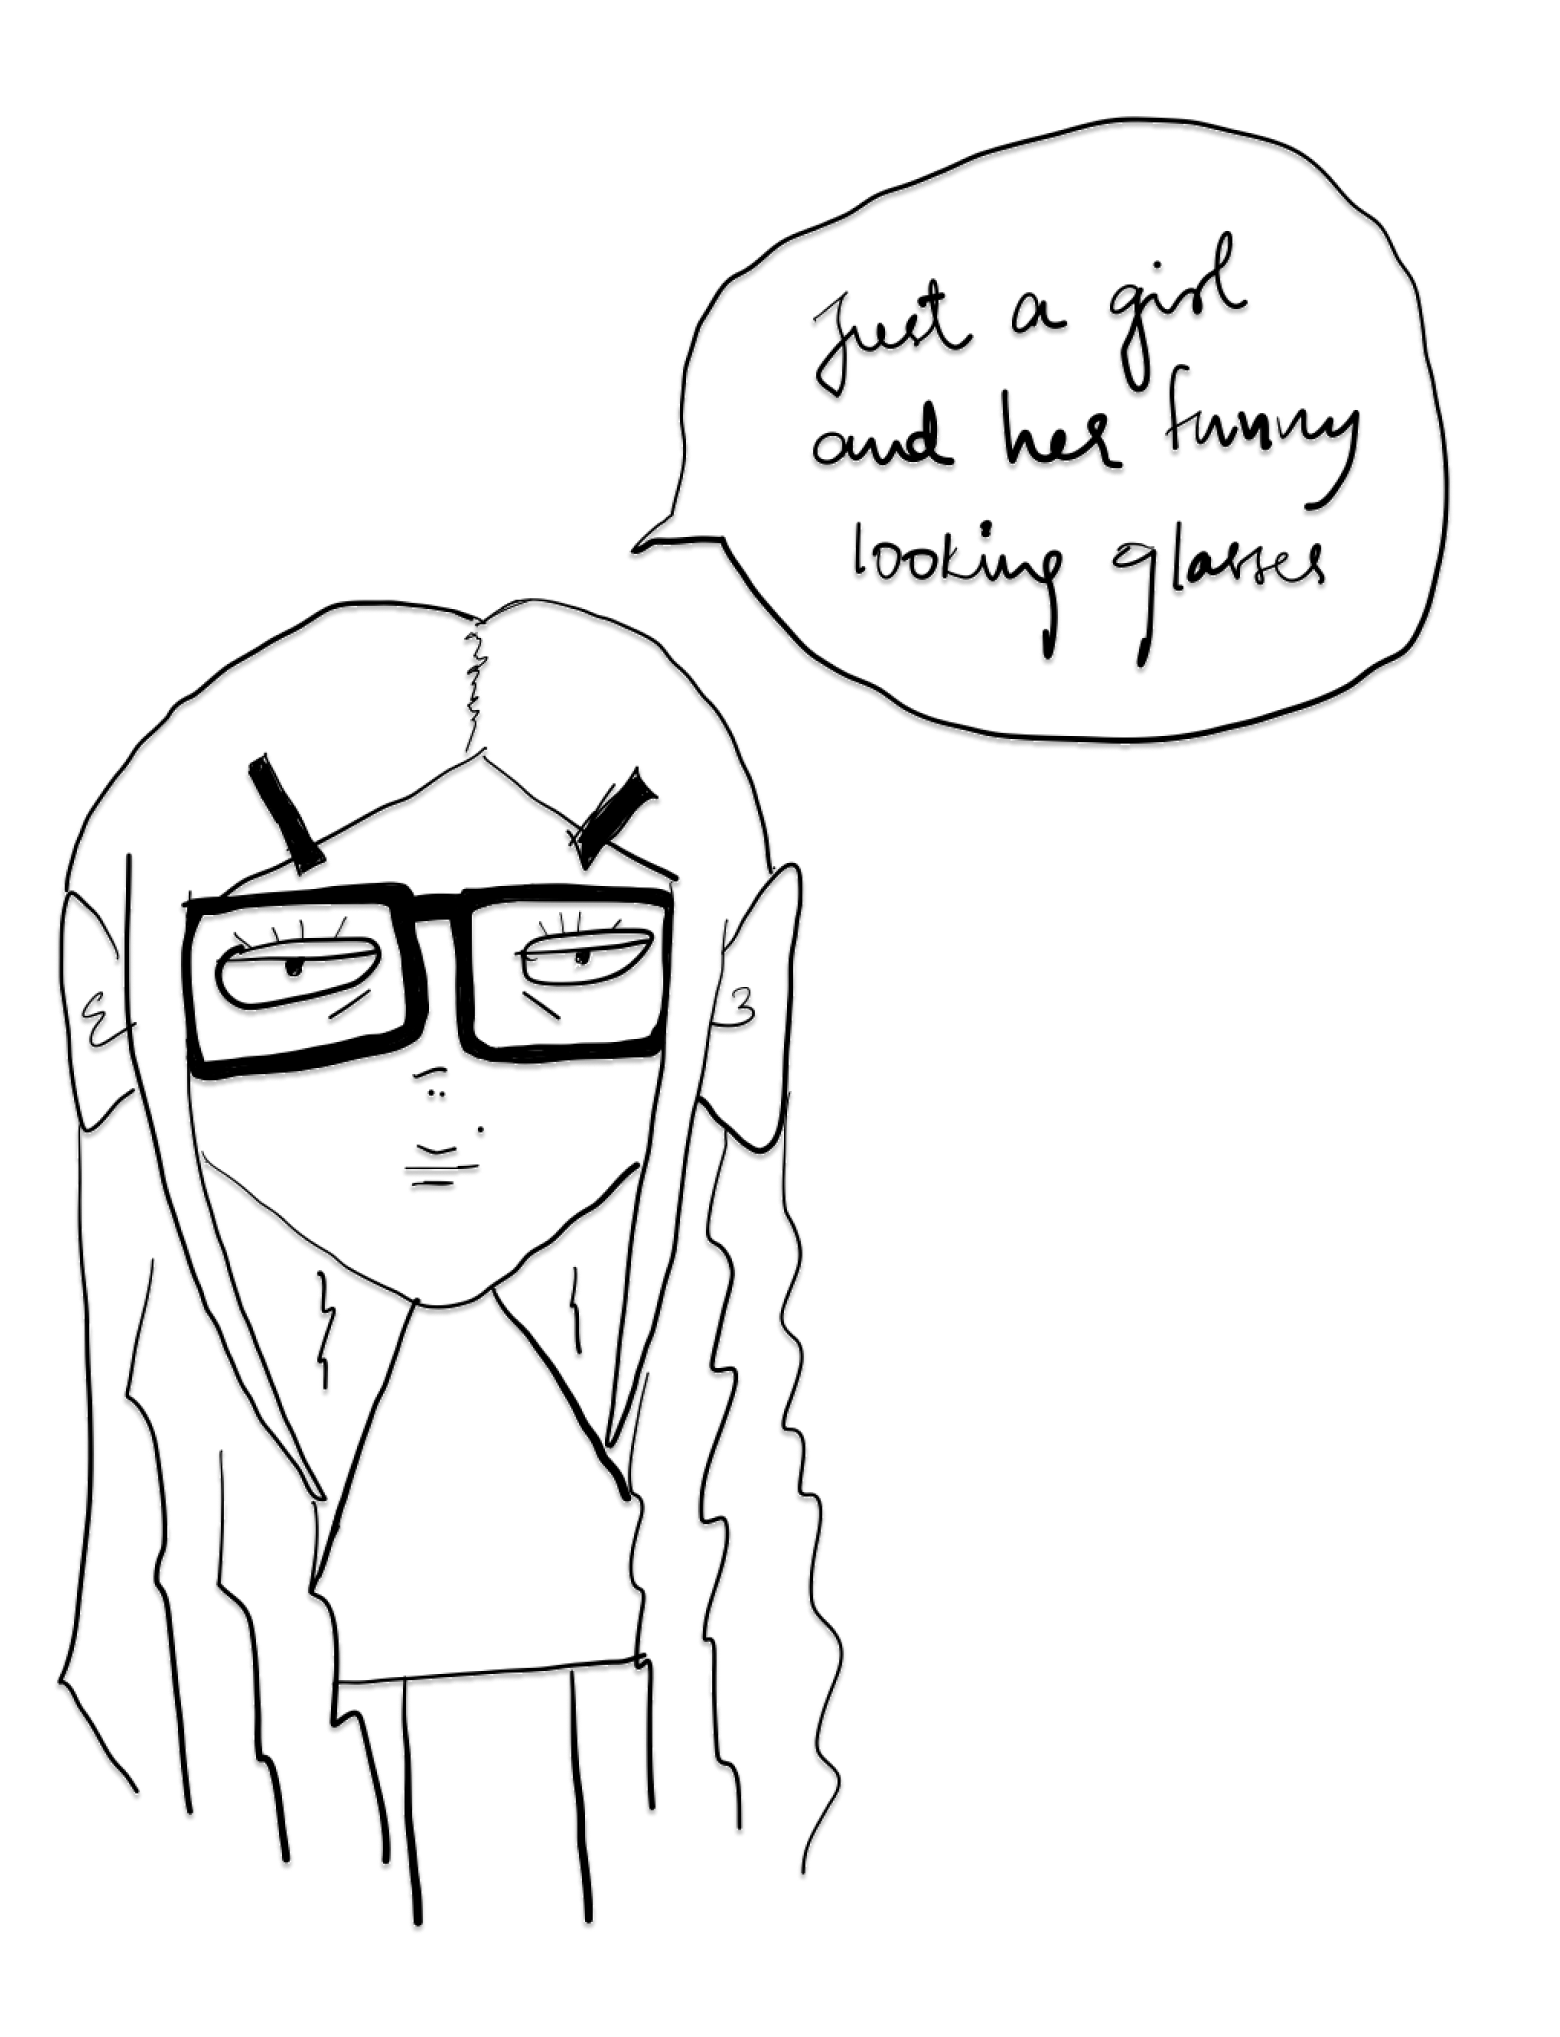 Just a girl
and her funny
looking glasses